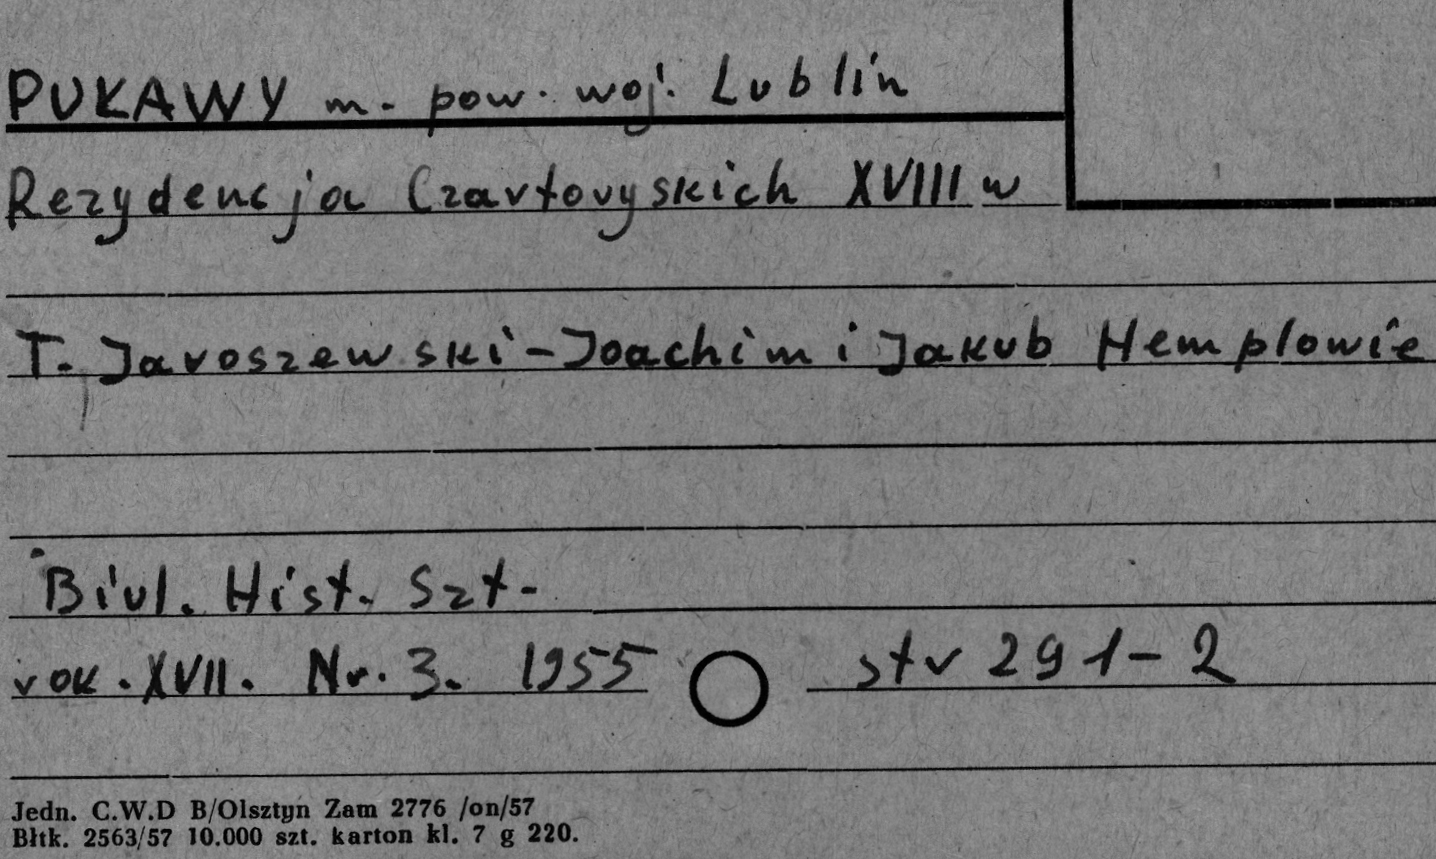 PUKAWY m. pow. woj. Lublin
Rezydencja Czartoryskich XVIII w
T. Jaroszewski - Joachim i Jakub Hemplowie
Biul. Hist. Szt.
rok. XVII. Nr. 3. 1955 str 291-2
Jedn. C.W.D B/Olsztyn Zam 2776 /on/57
Błtk. 2563/57 10.000 szt. karton kl. 7 g 220.